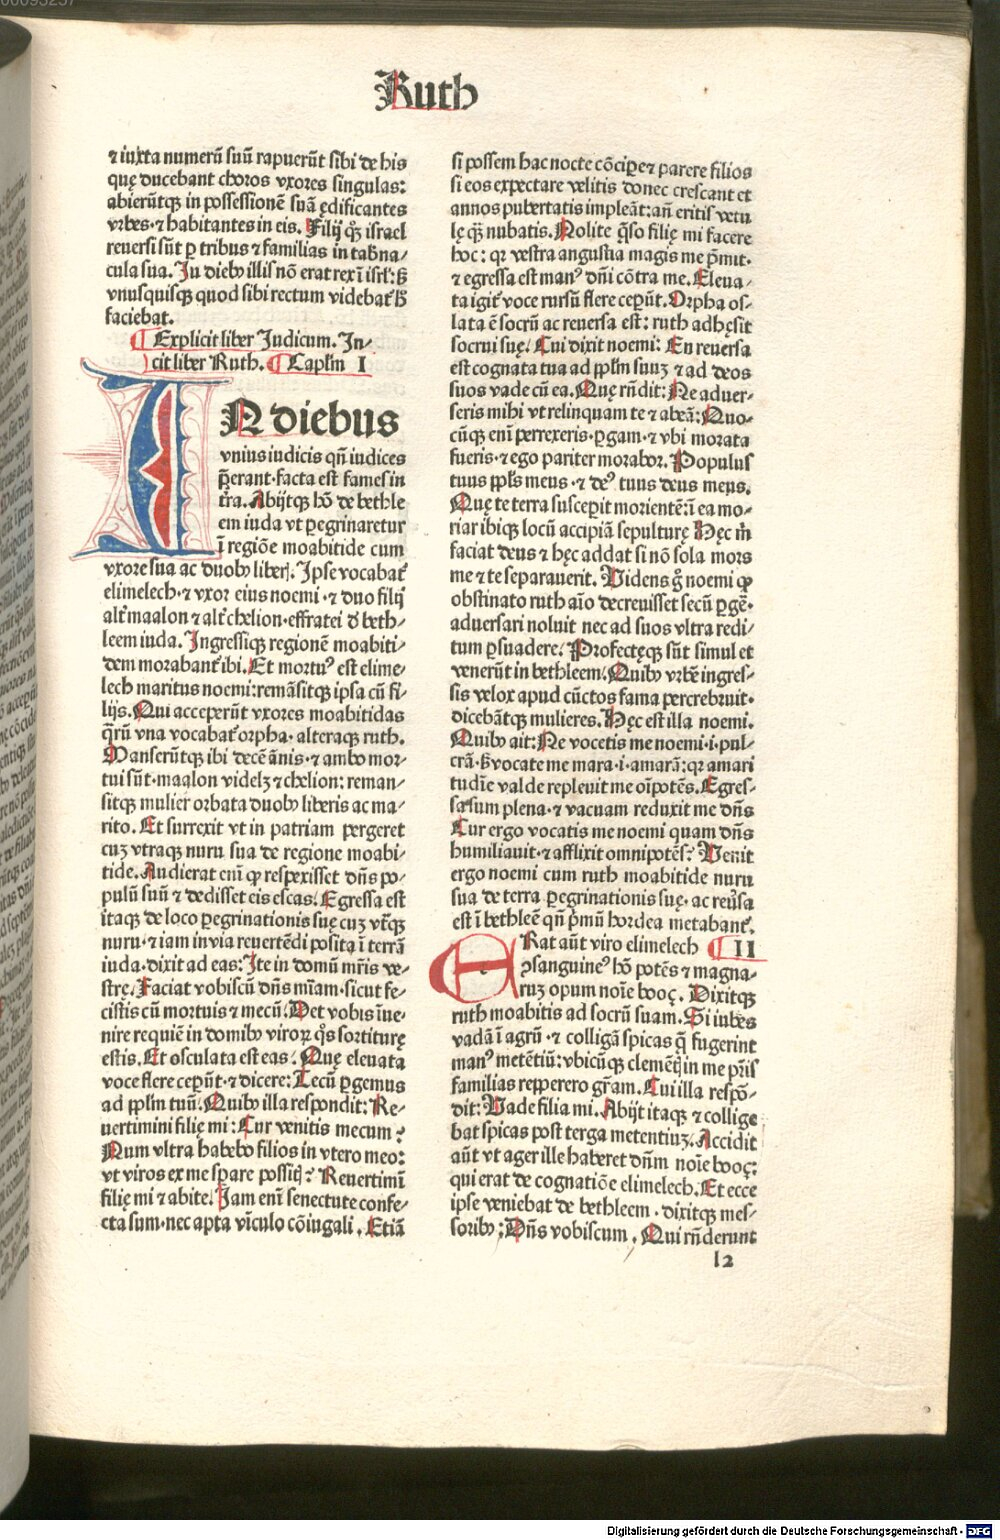 00093257
Ruth
⁊ iuxta numerū suū rapuerūt sibi de his
quę ducebant choros vxores singulas:
abierūtqꝫ in possessionē suā ędificantes
vrbes·⁊ habitantes in eis. Filij qꝫ̄ israel
reuersi sūt ꝑ tribus ⁊ familias in tab̄na⸗
cula sua. In dieb⁹ illis nō erat rex ī isrl̄: sꝫ
vnusquisqꝫ quod sibi rectum videbat̄ h̄
faciebat.
¶ Explicit liber Judicum. In⸗
cit liber Ruth. ¶ Caplm̄ I
IN diebus
vnius iudicis qn̄ iudices
p̄erant·facta est fames in
t̄ra. Abijtqꝫ hō de bethle
em iuda vt ꝑegrinaretur
ī regiōe moabitide cum
vxore sua ac duob⁹ liberꝭ. Ipse vocabat̄
elimelech·⁊ vxor eius noemi·⁊ duo filij
alt̄ maalon ⁊ alt̄ chelion·effratei d̄ beth⸗
leem iuda. Ingressiqꝫ regionē moabiti⸗
dem morabant̄ ibi. Et mortu⁹ est elime⸗
lech maritus noemi:remāsitqꝫ ipsa cū fi⸗
lijs. Qui acceperūt vxores moabitidas
q̄rū vna vocabat̄ orpha·alteraqꝫ ruth.
Manserūtqꝫ ibi decē ānis·⁊ ambo mor⸗
tui sūt·maalon videlꝫ ⁊ chelion: reman⸗
sitqꝫ mulier orbata duob⁹ liberis ac ma⸗
rito. Et surrexit vt in patriam pergeret
cuꝫ vtraqꝫ nuru sua de regione moabi⸗
tide. Audierat em̄ ꝙ respexisset dn̄s po⸗
pulū suū ⁊ dedisset eis escas. Egressa est
itaqꝫ de loco ꝑegrinationis suę cuꝫ vt̄qꝫ
nuru·⁊ iam in via reuertēdi posita ī terrā
iuda·dixit ad eas: Ite in domū mr̄is ve⸗
strę. Faciat vobiscū dn̄s mīam·sicut fe⸗
cistis cū mortuis ⁊ mecū. Det vobis īue⸗
nire requiē in domib⁹ viroꝝ q̄s sortiturę
estis. Et osculata est eas. Quę eleuata
voce flere ceꝑūt·⁊ dicere: Tecū ꝑgemus
ad pplm̄ tuū. Quib⁹ illa respondit: Re⸗
uertimini filię mi: Cur venitis mecum?
Num vltra habebo filios in vtero meo:
vt viros ex me sꝑare possitꝭ? Reuertimī
filię mi ⁊ abite. Jam em̄ senectute confe⸗
cta sum·nec apta vīculo cōiugali. Etiā
si possem hac nocte cōciꝑe ⁊ parere filios
si eos expectare velitis donec crescant et
annos pubertatis impleāt:an̄ eritis vetu
lę qꝫ̄ nubatis. Nolite q̄so filię mi facere
hoc: qr vestra angustia magis me p̄mit·
⁊ egressa est man⁹ dn̄i cōtra me. Eleua⸗
ta igit̄ voce rursū flere ceꝑūt. Orpha os⸗
lata ē socrū ac reuersa est: ruth adhęsit
socrui suę. Cui dixit noemi: En reuersa
est cognata tua ad pplm̄ suuꝫ ⁊ ad deos
suos vade cū ea. Quę rn̄dit: Ne aduer⸗
seris mihi vt relinquam te ⁊ abeā: Quo⸗
cūqꝫ em̄ perrexeris·ꝑgam·⁊ vbi morata
fueris·⁊ ego pariter morabor. Populus
tuus ppl̄s meus·⁊ de⁹ tuus deus meus.
Quę te terra susceꝑit morientē:ī ea mo⸗
riar ibiqꝫ locū accipiā sepulturę Hęc m̄
faciat deus ⁊ hęc addat si nō sola mors
me ⁊ te separauerit. Videns g̊ noemi ꝙ
obstinato ruth aīo decreuisset secū ꝑgē·
aduersari noluit nec ad suos vltra redi⸗
tum ꝑsuadere. Profectęqꝫ sūt simul et
venerūt in bethleem. Quib⁹ vrbē ingres⸗
sis velox apud cūctos fama percrebruit·
dicebātqꝫ mulieres. Hęc est illa noemi.
Quib⁹ ait: Ne vocetis me noemi·i·pul⸗
crā·sꝫ vocate me mara·i·amarā: qr amari
tudīe valde repleuit me oīpotēs. Egres⸗
sa sum plena·⁊ vacuam reduxit me dn̄s
Cur ergo vocatis me noemi quam dn̄s
humiliauit·⁊ afflixit omnipotēs? Venit
ergo noemi cum ruth moabitide nuru
sua de terra ꝑegrinationis suę·ac reu̓sa
est ī bethleē qn̄ p̄mū hordea metabant̄.
ERat aūt viro elimelech ¶ II
ꝯsanguine⁹ hō potēs ⁊ magna⸗
ruꝫ opum noīe booç. Dixitqꝫ
ruth moabitis ad socrū suam. Si iubes
vadā ī agrū·⁊ colligā spicas q̄ fugerint
man⁹ metētiū: vbicūqꝫ clemētꝭ in me pr̄is
familias repperero gr̄am. Cui illa respō⸗
dit: Vade filia mi. Abijt itaqꝫ ⁊ collige
bat spicas post terga metentiuꝫ. Accidit
aūt vt ager ille haberet dn̄m noīe booç:
qui erat de cognatiōe elimelech. Et ecce
ipse veniebat de bethleem·dixitqꝫ mes⸗
sorib⁹: Dn̄s vobiscum. Qui rn̄derunt
l2
Digitalisierung gefördert durch die Deutsche Forschungsgemeinschaft - DFG